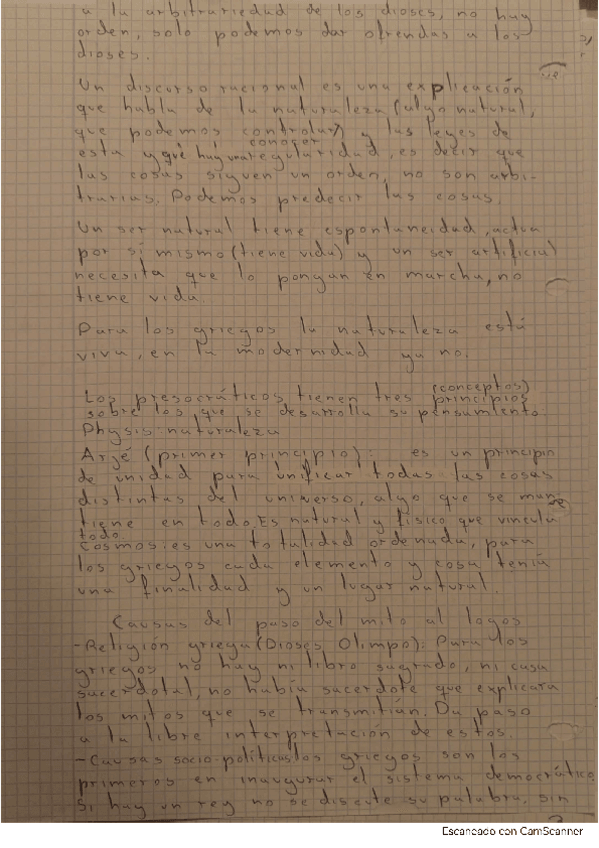 a la arbitrariedad de los dioses, no hay
orden, solo podemos dar ofrendas a los
dioses.
Un discurso racional es una explicación
que habla de la naturaleza (algo natural,
que podemos controlar) y las leyes de
conocer
esta y que hay una regularidad, es decir que
las cosas siguen un orden, no son arbi-
trarias. Podemos predecir las cosas.
Un ser natural tiene espontaneidad, actua
por sí mismo (tiene vida) y un ser artificial
necesita que lo pongan en marcha, no
tiene vida.
Para los griegos la naturaleza está
viva, en la modernidad ya no.
(conceptos)
Los presocráticos tienen tres principios
sobre los que se desarrolla su pensamiento.
Physis: naturaleza
Arjé (primer principio): es un principio
de unidad para unificar todas las cosas
distintas del universo, algo que se man
tiene en todo. Es natural y físico que vincula
todo.
Cosmos: es una totalidad ordenada, para
los griegos cada elemento y cosa tenía
una finalidad y un lugar natural.
Causas del paso del mito al logos
-Religión griega (Dioses Olimpo): Para los
griegos no hay ni libro sagrado, ni casa
sacerdotal, no había sacerdote que explicara
los mitos que se transmitían. Da paso
a la libre interpretación de estos.
-Causas socio-políticas los griegos son los
primeros en inaugurar el sistema democrático.
Si hay un rey no se discute su palabra, sin
Escaneado con CamScanner